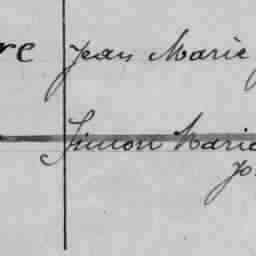 re Jean Marie
Simon Marie
Jo